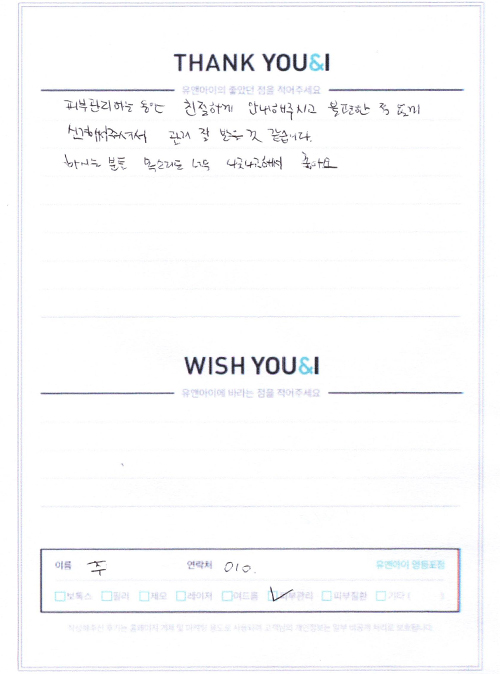 THANK YOU&I
유앤아이의 좋았던 점을 적어주세요
피부관리하는 동안 친절하게 안내해주시고 불편한 적 없게
신경써주셔서 관리 잘 받은 것 같습니다.
하시는 분들 목소리도 너무 나긋나긋해서 좋아요
WISH YOU&I
유앤아이에 바라는 점을 적어주세요
이름 주 연락처 010. 유앤아이 영등포점
보톡스 필러 제모 레이저 여드름 피부관리 피부질환 기타 ( )
작성해주신 후기는 홈페이지 게재 및 마케팅 용도로 사용되며 고객님의 개인정보는